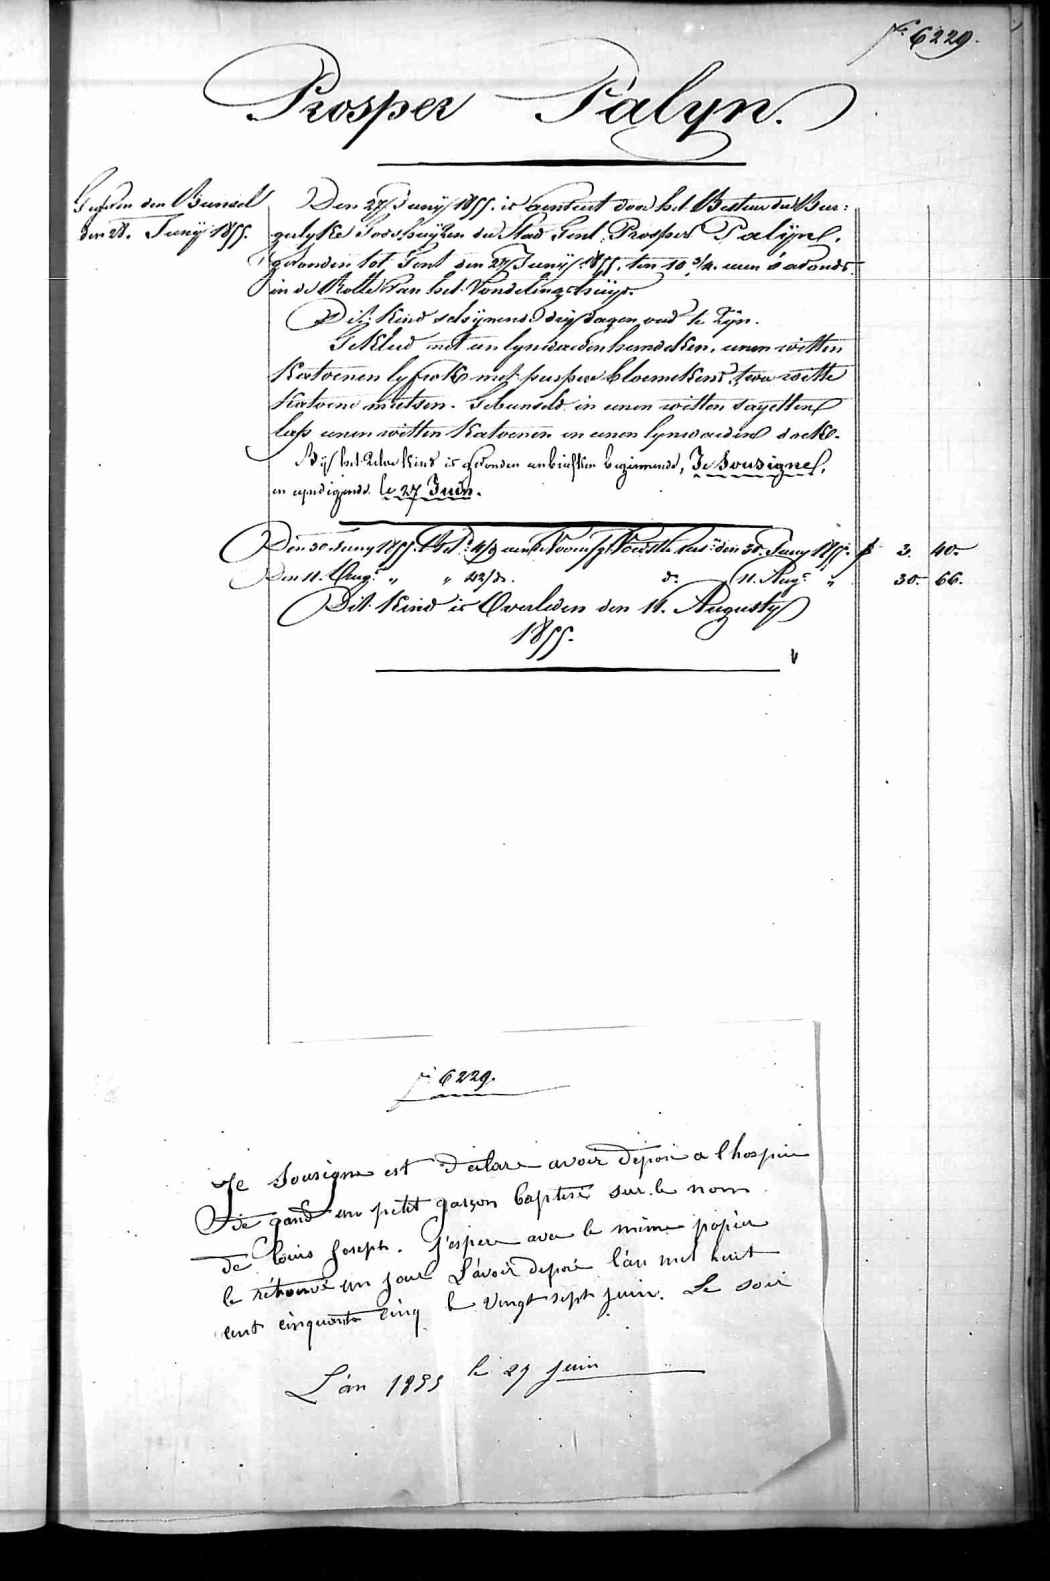 6229.
Prosper Palyn.
den Bunsel
den 28. Junij 1855.
Den 27 Junij 1855. is aenveert door het Bestuer der Bur:
gelyke Godshuijzen der Stad Gent, Prosper Palijn,
gevonden tot Gent den 27 Junij 1855, ten 10 3/4 uren s'avonds
in de Rolle van het Vondelingshuijs.
Dit Kind schijnende drij dagen oud te Zijn.
Gekleed met een lynwaeden hemdeken, eenen witten
Katoenen lyfrok met purpere bloemekens, twee witte
Katoene mutsen. Gebunseld in eenen witten sayetten
lap eenen witten Katoenen en eenen lynwaeden doek.
Bij het Kind is gevonden een briefken beginnende, Je Sousigné,
en eyndigende le 27 Juin.
Den 30 Juny 1855. den 30. Juny 1855. f 3. 40.
Den 11. Aug: " " 42/ do. do. 11. Aug: " 30. 66.
Dit Kind is Overleden den 11. Augusty
1855.
6229.
Je Sousigne est déclare avoir déposé a l'hospice
de gand un petit garçon baptisé sur le nom
de louis Joseph. J'espere avec le même papier
le rétrouvé un jour L'avoir deposé l'an mil huit
cent cinquante cinq le vingt sept juin. Le soir
L'an 1855 le 27 juin